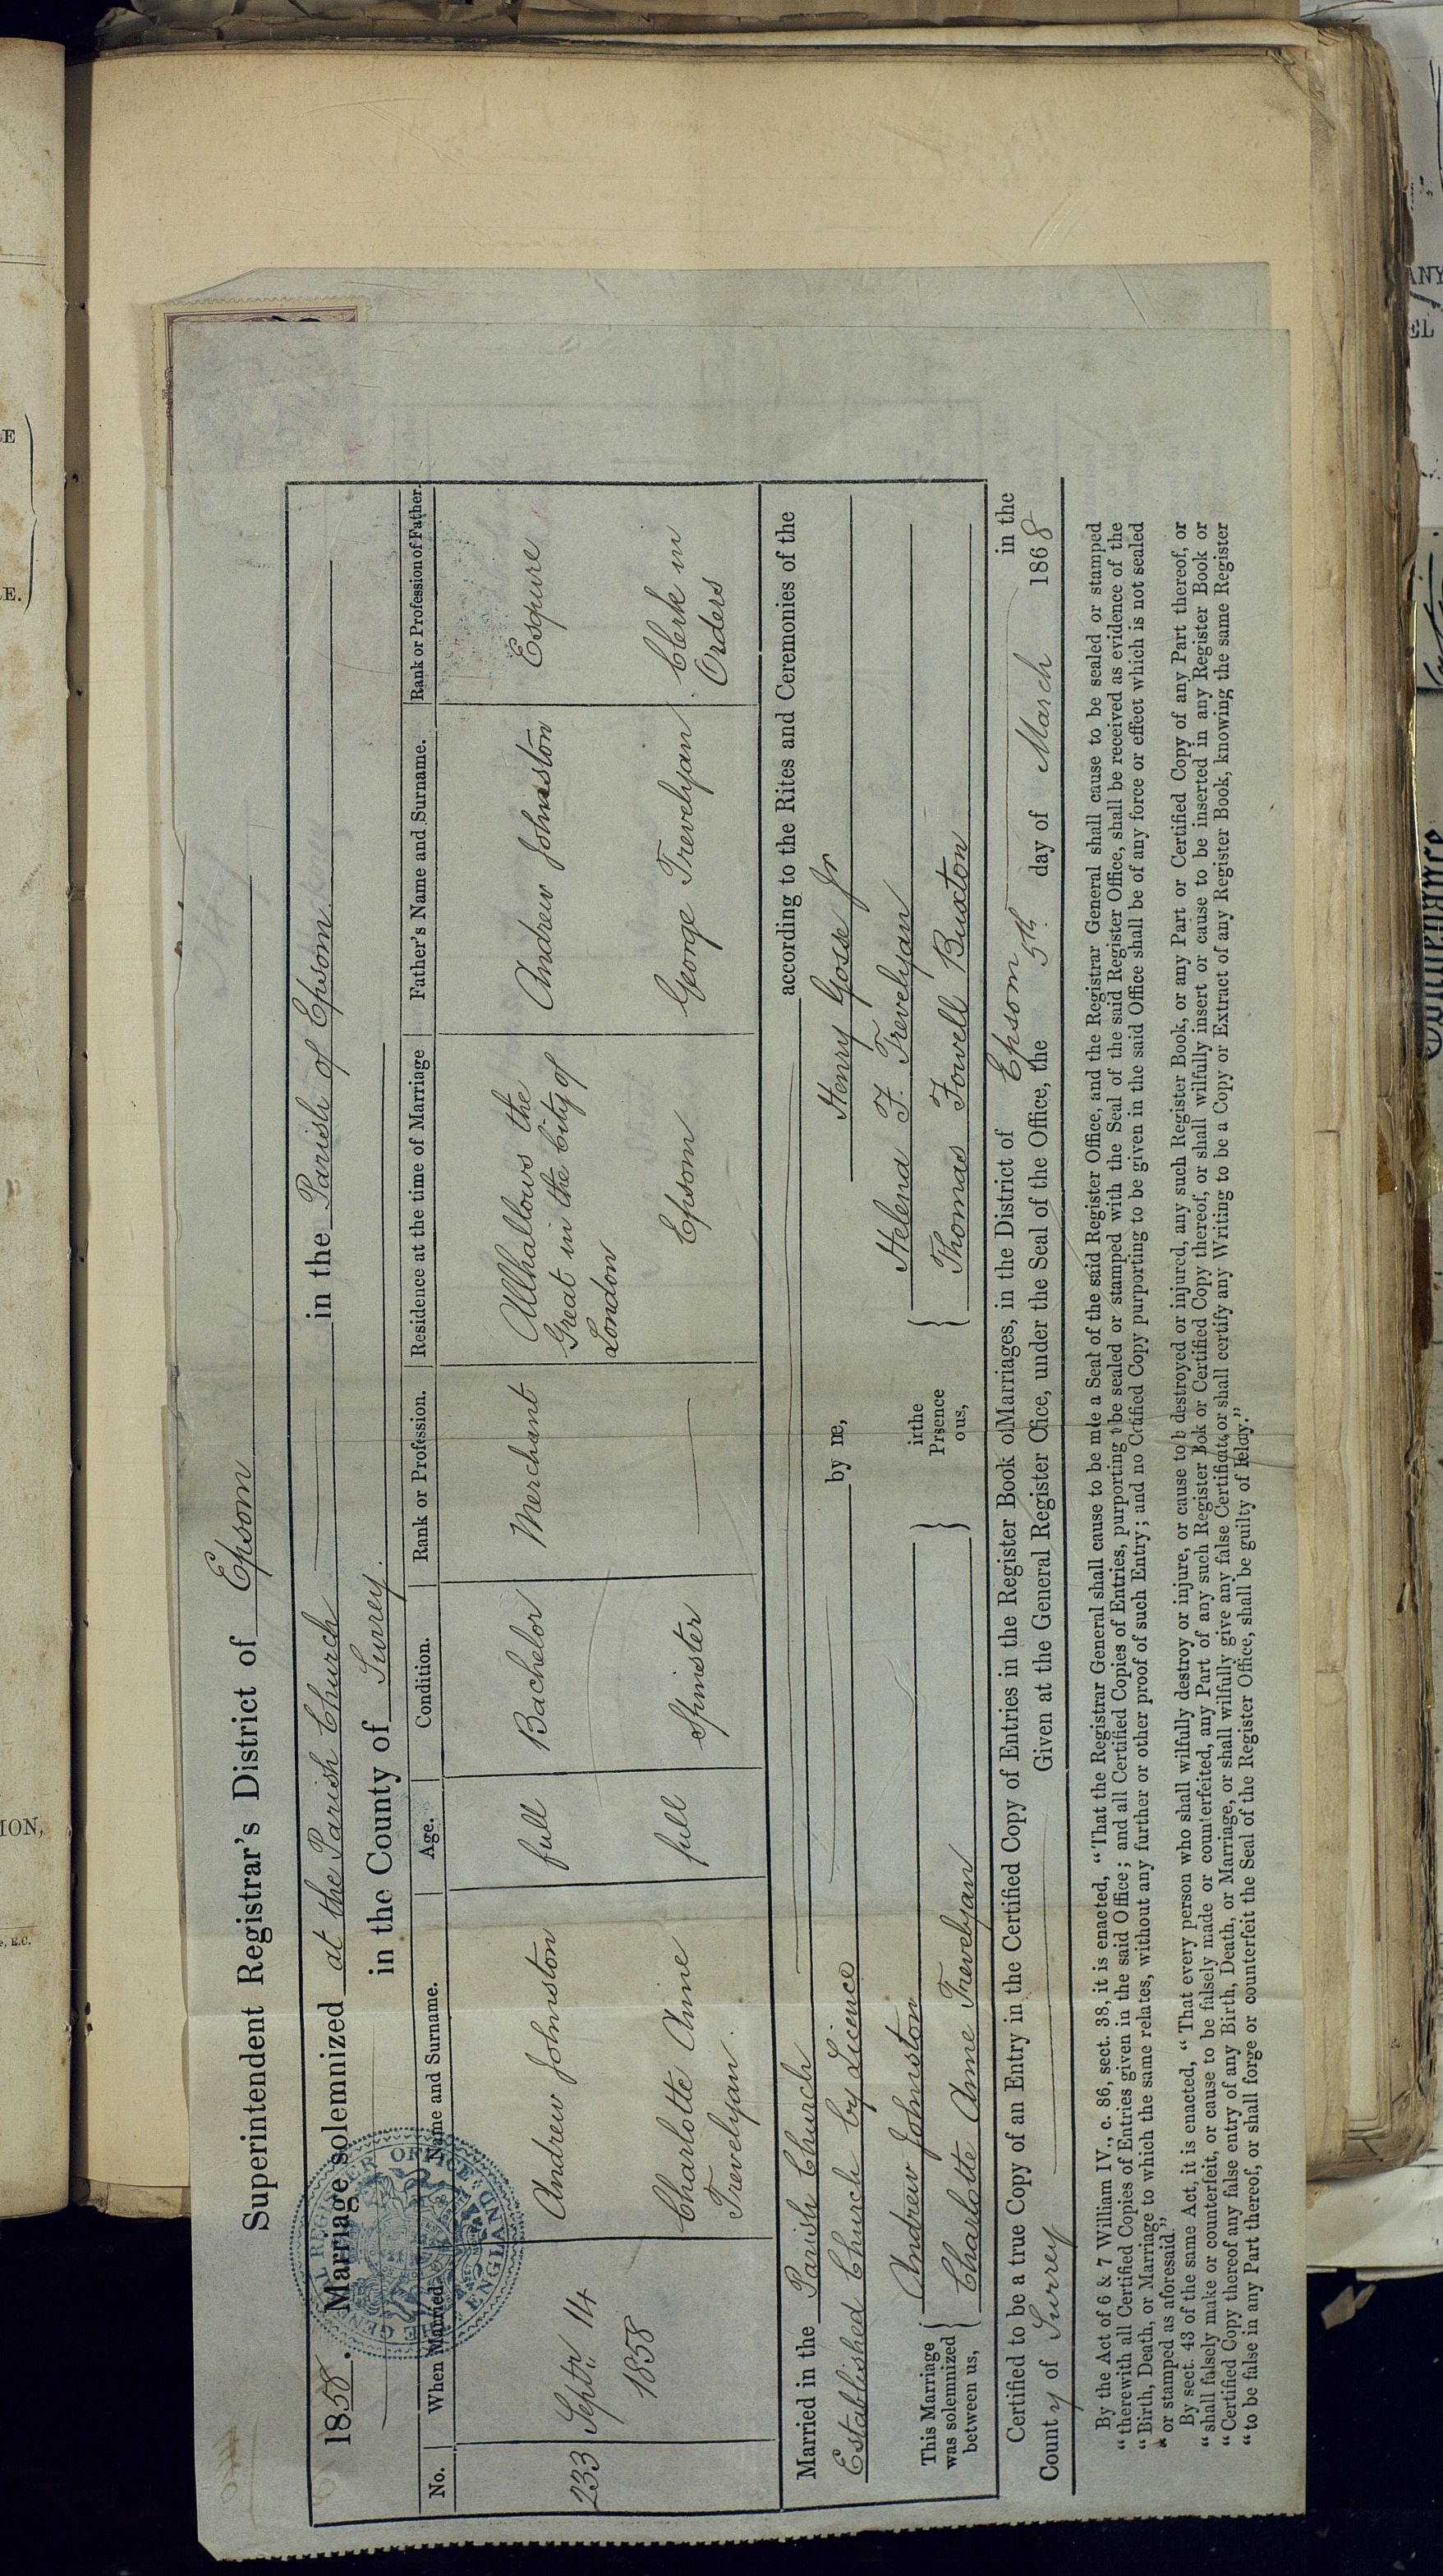 Superintendent Registrar's District of Epsom
1858. Marriage solemnized at the Parish Church in the Parish of Epsom
in the County of Surrey.
No. When Married. Name and Surname. Age. Condition. Rank or Profession. Residence at the time of Marriage Father's Name and Surname. Rank or Profession of Father.
233 Septr. 14 1858
Andrew Johnston full Bachelor Merchant Allhallows the Great in the City of London Andrew Johnston Esquire
Charlotte Anne Trevelyan. full Spinster — Epsom George Trevelyan Clerk in Orders
THE GENERAL REGISTER OFFICE ENGLAND
Married in the Parish Church according to the Rites and Ceremonies of the
Established Church by Licence by me, Henry Gosse Jr
This Marriage was solemnized between us, { Andrew Johnston
Charlotte Anne Trevelyan } in the Presence of us, { Helena F. Trevelyan
Thomas Fowell Buxton
Certified to be a true Copy of an Entry in the Certified Copy of Entries in the Register Book of Marriages, in the District of Epsom in the
County of Surrey Given at the General Register Office, under the Seal of the Office, the 5th day of March 1868
By the Act of 6 & 7 William IV., c. 86, sect. 38, it is enacted, "That the Registrar General shall cause to be made a Seal of the said Register Office, and the Registrar General shall cause to be sealed or stamped
"therewith all Certified Copies of Entries given in the said Office; and all Certified Copies of Entries, purporting to be sealed or stamped with the Seal of the said Register Office, shall be received as evidence of the
"Birth, Death, or Marriage to which the same relates, without any further or other proof of such Entry; and no Certified Copy purporting to be given in the said Office shall be of any force or effect which is not sealed
"or stamped as aforesaid."
By sect. 43 of the same Act, it is enacted, "That every person who shall wilfully destroy or injure, or cause to be destroyed or injured, any such Register Book, or any Part or Certified Copy of any Part thereof, or
"shall falsely make or counterfeit, or cause to be falsely made or counterfeited, any Part of any such Register Book or Certified Copy thereof, or shall wilfully insert or cause to be inserted in any Register Book or
"Certified Copy thereof any false entry of any Birth, Death, or Marriage, or shall wilfully give any false Certificate, or shall certify any Writing to be a Copy or Extract of any Register Book, knowing the same Register
"to be false in any Part thereof, or shall forge or counterfeit the Seal of the Register Office, shall be guilty of Felony."